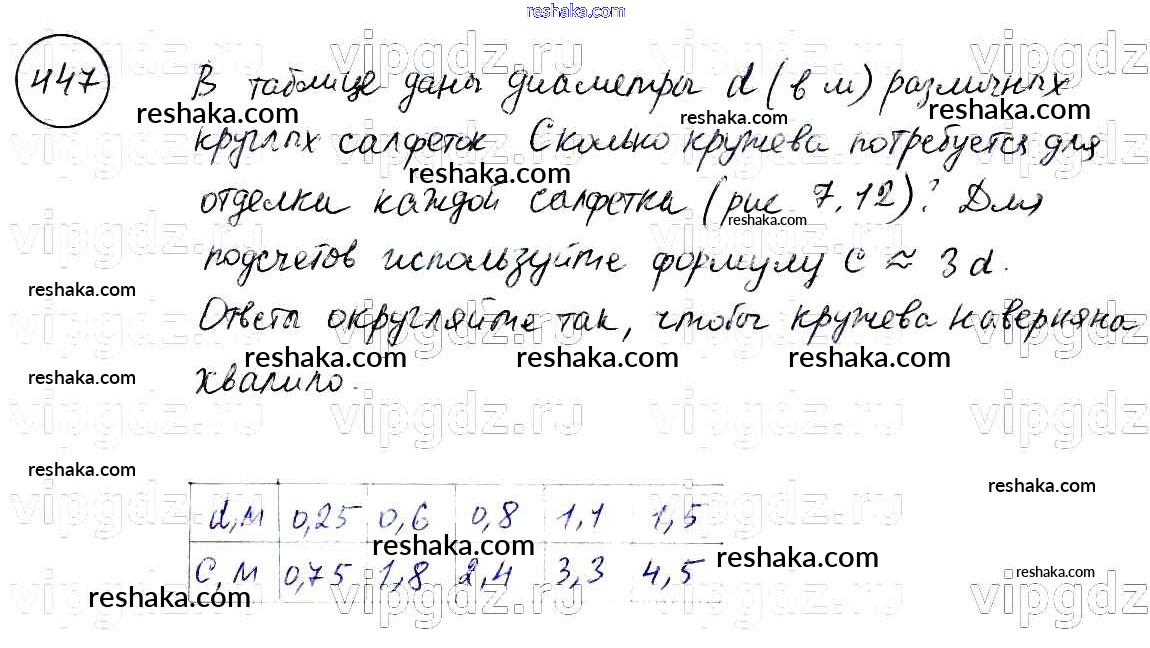 reshaka.com
447
В таблице даны диаметры d (в м) различных
reshaka.com reshaka.com
reshaka.com
круглых салфеток Сколько кружева потребуется для
reshaka.com
отделки каждой салфетка (рис 7,12)? Для
reshaka.com
подсчетов используйте формулу C ≈ 3d.
reshaka.com
Ответы округляйте так, чтобы кружева наверняка
reshaka.com reshaka.com reshaka.com
reshaka.com
хватило.
vipgdz.ru vipgdz.ru vipgdz.ru vipgdz
reshaka.com
reshaka.com
d,м 0,25 0,6 0,8 1,1 1,5
reshaka.com reshaka.com
C,м 0,75 1,8 2,4 3,3 4,5
reshaka.com
reshaka.com